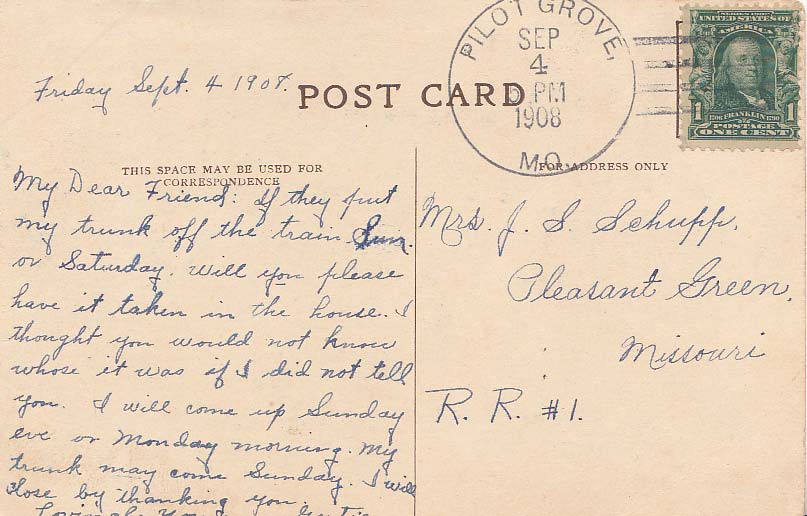 PILOT GROVE,
SEP
4
5 PM
1908
MO.
SERIES 1902
UNITED STATES OF
AMERICA
1 1
1706 FRANKLIN 1790
POSTAGE
ONE CENT
Friday Sept. 4 1908.
POST CARD
THIS SPACE MAY BE USED FOR
CORRESPONDENCE
FOR ADDRESS ONLY
My Dear Friend: If they put
my trunk off the train Sun.
or Saturday. Will you please
have it taken in the house. I
thought you would not know
whose it was if I did not tell
you. I will come up Sunday
eve or Monday morning. My
trunk may come Sunday. I will
close by thanking you.
Mrs. J. S. Schupp,
Pleasant Green,
Missouri
R. R. #1.